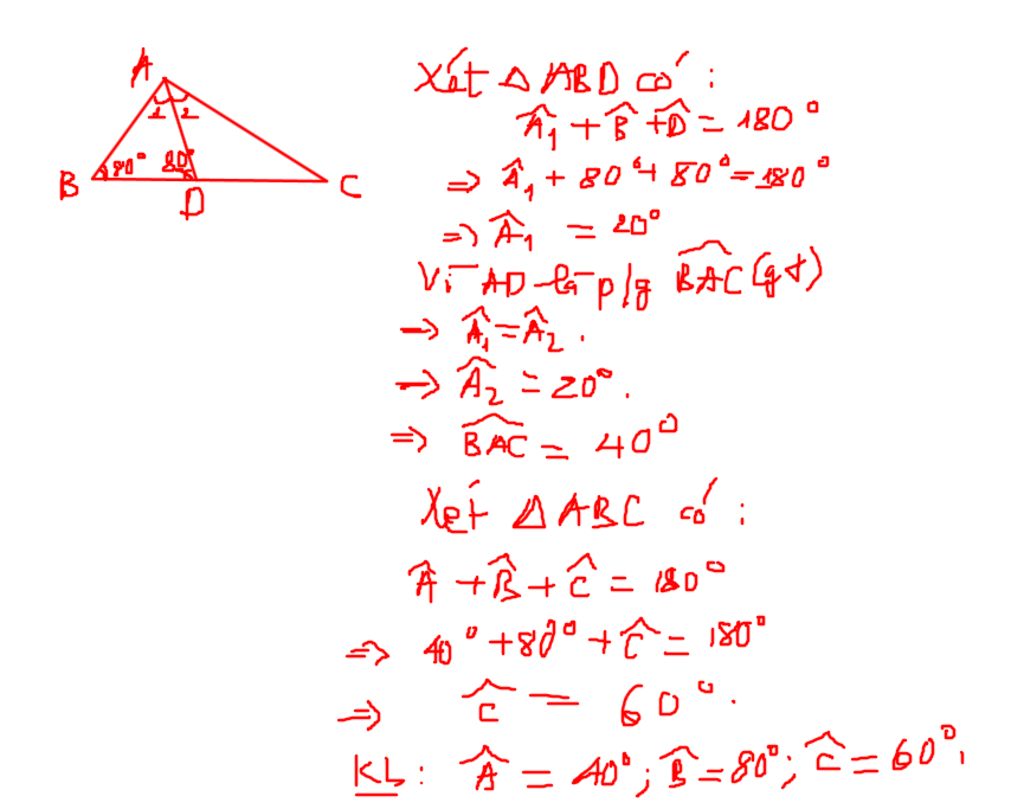 A
1 2
80° 80°
B D C
Xét △ABD có:
Â₁ + B̂ + D̂ = 180°
=> Â₁ + 80° + 80° = 180°
=> Â₁ = 20°
Vì AD là p/g B͡AC (gt)
→ Â₁ = Â₂.
→ Â₂ = 20°.
=> B͡AC = 40°
Xét △ABC có:
Â + B̂ + Ĉ = 180°
=> 40° + 80° + Ĉ = 180°
=> Ĉ = 60°.
KL: Â = 40°; B̂ = 80°; Ĉ = 60°.